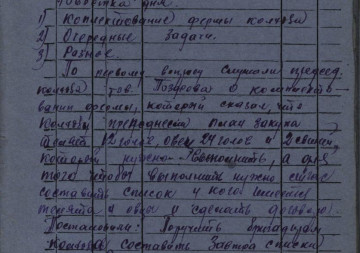 Повестка дня.
1) Комплектование фермы колхоза
2) Очередные задачи.
3) Разное
По первому вопросу слушали председ.
колхоза тов. о комплекто-
вании фермы, который сказал, что
Колхозу план закупа
телята 12 голов, овец 24 голов и 2 свиньи,
Который нужно выполнить, а для
того чтобы выполнить нужно сейчас
составить список у кого имеются
телята и овцы и сделать договора.
Постановили: Поручить бригадирам
колхоза составить завтра списки